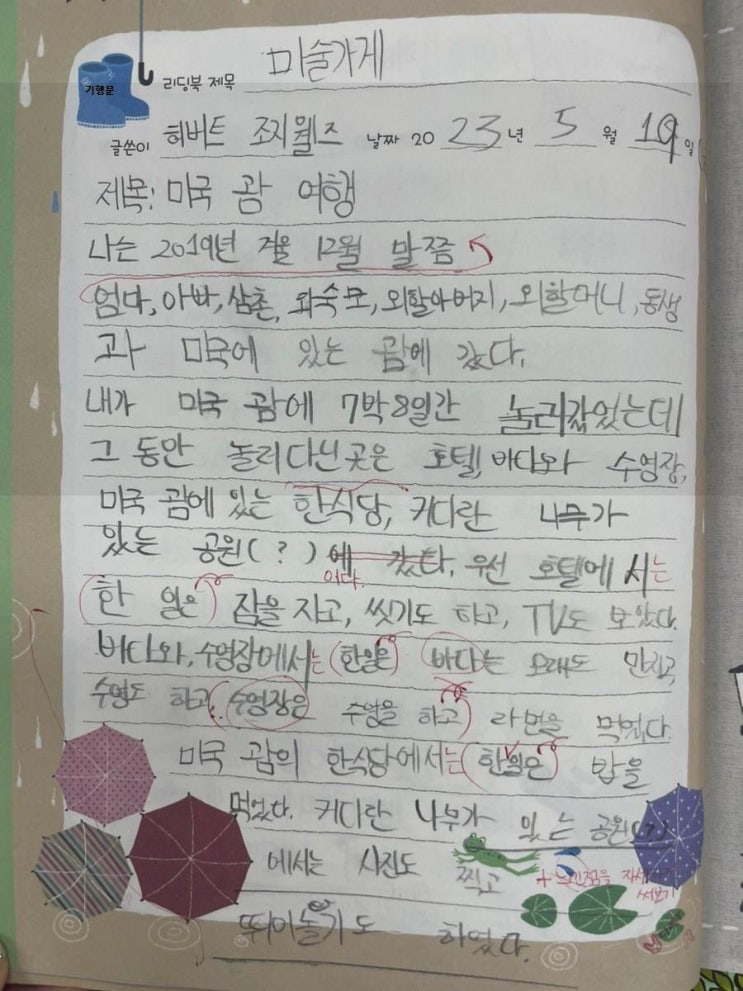 기행문
리딩북 제목 미술가게
글쓴이 허버트 조지웰즈 날짜 20 23년 5월 19일
제목: 미국 괌 여행
나는 2019년 겨울 12월 말쯤
엄마, 아빠, 삼촌, 외숙모, 외할아버지, 외할머니, 동생
과 미국에 있는 괌에 갔다.
내가 미국 괌에 7박8일간 놀러갔었는데
그 동안 놀러다닌곳은 호텔, 바다와 수영장,
미국 괌에 있는 한식당, 커다란 나무가
있는 공원(?)에 갔다. 우선 호텔에서는
이다.
한 일은 잠을 자고, 씻기도 하고, TV도 보았다.
바다와, 수영장에서는 한일은 바다는 모래도 만지고,
수영도 하고, 수영장은 수영을 하고 라면을 먹었다.
미국 괌의 한식당에서는 한일은 밥을
먹었다. 커다란 나무가 있는 공원(?)
에서는 사진도 찍고
+ 느낀점을 자세하게
써보기
뛰어놀기도 하였다.